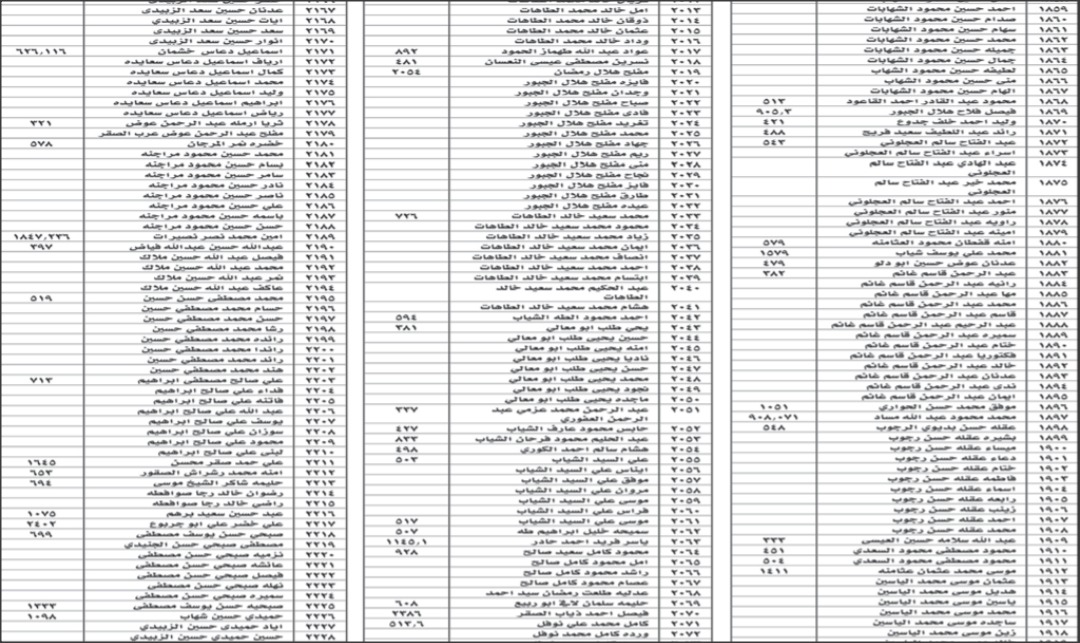 ١٨٥٩ احمد حسين محمود الشهابات
١٨٦٠ صدام حسين محمود الشهابات
١٨٦١ سهام حسين محمود الشهابات
١٨٦٢ محمد حسين محمود الشهابات
١٨٦٣ جميله حسين محمود الشهابات
١٨٦٤ جمال حسين محمود الشهابات
١٨٦٥ لطيفه حسين محمود الشهاب
١٨٦٦ منى حسين محمود الشهاب
١٨٦٧ الهام حسين محمود الشهابات
١٨٦٨ محمود عبد القادر احمد القاعود ٥١٣
١٨٦٩ فيصل فلاح هلال الجبور ٩٠٥,٣
١٨٧٠ وليد احمد خلف جدوع ٤٢١
١٨٧١ رائد عبد اللطيف سعيد فريج ٤٨٨
١٨٧٢ عبد الفتاح سالم العجلوني ٥٤٣
١٨٧٣ اسراء عبد الفتاح سالم العجلوني
١٨٧٤ عبد الهادي عبد الفتاح سالم
العجلوني
١٨٧٥ محمد خير عبد الفتاح سالم
العجلوني
١٨٧٦ احمد عبد الفتاح سالم العجلوني
١٨٧٧ منور عبد الفتاح سالم العجلوني
١٨٧٨ راويه عبد الفتاح سالم العجلوني
١٨٧٩ امينه عبد الفتاح سالم العجلوني
١٨٨٠ امنه قفطان محمود العثامنه ٥٧٩
١٨٨١ محمد علي يوسف شياب ١٥٧٩
١٨٨٢ عدنان عوض حسين ابو دلو ٤٧٩
١٨٨٣ عبد الرحمن قاسم غانم ٣٨٢
١٨٨٤ رانيه عبد الرحمن قاسم غانم
١٨٨٥ مها عبد الرحمن قاسم غانم
١٨٨٦ محمد عبد الرحمن قاسم غانم
١٨٨٧ قاسم عبد الرحمن قاسم غانم
١٨٨٨ عبد الرحيم عبد الرحمن قاسم غانم
١٨٨٩ سميره عبد الرحمن قاسم غانم
١٨٩٠ ختام عبد الرحمن قاسم غانم
١٨٩١ فكتوريا عبد الرحمن قاسم غانم
١٨٩٢ خالد عبد الرحمن قاسم غانم
١٨٩٣ عدنان عبد الرحمن قاسم غانم
١٨٩٤ ندى عبد الرحمن قاسم غانم
١٨٩٥ ايمان عبد الرحمن قاسم غانم
١٨٩٦ موفق محمد حسن الحواري ١٠٥١
١٨٩٧ محمد محمود عبد الله مساد ٩٠٨,٠٧١
١٨٩٨ عقله حسن بديوي الرجوب ٥٤٨
١٨٩٩ بشيره عقله حسن رجوب
١٩٠٠ ميساء عقله حسن رجوب
١٩٠١ دعاء عقله حسن رجوب
١٩٠٢ ختام عقله حسن رجوب
١٩٠٣ فاطمه عقله حسن رجوب
١٩٠٤ اسماء عقله حسن رجوب
١٩٠٥ رابعه عقله حسن رجوب
١٩٠٦ زينب عقله حسن رجوب
١٩٠٧ احمد عقله حسن رجوب
١٩٠٨ محمد عقله حسن رجوب
١٩٠٩ عبد الله سلامه حسين العيسى ٣٣٣
١٩١٠ محمود مصطفى محمود السعدي ٤٥١
١٩١١ مصطفى محمود السعدي ٥٠٤
١٩١٢ موسى محمد عثمان عثامنه ١٤١١
١٩١٣ عثمان موسى محمد الياسين
١٩١٤ هديل موسى محمد الياسين
١٩١٥ ياسين موسى محمد الياسين
١٩١٦ محمد موسى محمد الياسين
١٩١٧ ساجده موسى محمد الياسين
١٩١٨ رين موسى محمد الياسين
٢٠١٣ امل خالد محمد الطاهات
٢٠١٤ ذوقان خالد محمد الطاهات
٢٠١٥ عثمان خالد محمد الطاهات
٢٠١٦ وداد خالد محمد الطاهات
٢٠١٧ عواد عبد الله طهماز الحمود ٨٩٢
٢٠١٨ نسرين مصطفى عيسى النعسان ٤٨١
٢٠١٩ مفلح هلال رمضان ٢٠٥٤
٢٠٢٠ فايزه مفلح هلال الجبور
٢٠٢١ وجدان مفلح هلال الجبور
٢٠٢٢ صباح مفلح هلال الجبور
٢٠٢٣ فادي مفلح هلال الجبور
٢٠٢٤ تغريد مفلح هلال الجبور
٢٠٢٥ محمد مفلح هلال الجبور
٢٠٢٦ جهاد مفلح هلال الجبور
٢٠٢٧ ريم مفلح هلال الجبور
٢٠٢٨ منى مفلح هلال الجبور
٢٠٢٩ نجاح مفلح هلال الجبور
٢٠٣٠ فايز مفلح هلال الجبور
٢٠٣١ طارق مفلح هلال الجبور
٢٠٣٢ عبده مفلح هلال الجبور
٢٠٣٣ محمد سعيد خالد الطاهات ٧٢٦
٢٠٣٤ محمود محمد سعيد خالد الطاهات
٢٠٣٥ زياد محمد سعيد خالد الطاهات
٢٠٣٦ ايمان محمد سعيد خالد الطاهات
٢٠٣٧ انصاف محمد سعيد خالد الطاهات
٢٠٣٨ احمد محمد سعيد خالد الطاهات
٢٠٣٩ ابتسام محمد سعيد خالد الطاهات
٢٠٤٠ عبد الحكيم محمد سعيد خالد
الطاهات
٢٠٤١ هشام محمد سعيد خالد الطاهات
٢٠٤٢ احمد محمود الطه الشياب ٥٩٤
٢٠٤٣ يحي طلب ابو معالي ٣٨١
٢٠٤٤ حسين يحيى طلب ابو معالي
٢٠٤٥ امنه يحيى طلب ابو معالي
٢٠٤٦ ناديا يحيى طلب ابو معالي
٢٠٤٧ حسن يحيى طلب ابو معالي
٢٠٤٨ محمد يحيى طلب ابو معالي
٢٠٤٩ نجود يحيى طلب ابو معالي
٢٠٥٠ ماجده يحيى طلب ابو معالي
٢٠٥١ عبد الرحمن محمد عزمي عبد ٣٣٧
الرحمن العقوري
٢٠٥٢ حابس محمود عارف الشياب ٤٣٧
٢٠٥٣ عبد الحليم محمود فرحان الشياب ٨٣٣
٢٠٥٤ هشام سالم احمد الكوري ٤٩٨
٢٠٥٥ علي السيد الشياب ٥٠٣
٢٠٥٦ ايناس علي السيد الشياب
٢٠٥٧ موفق علي السيد الشياب
٢٠٥٨ مروان علي السيد الشياب
٢٠٥٩ موسى علي السيد الشياب
٢٠٦٠ فراس علي السيد الشياب
٢٠٦١ موسى علي السيد الشياب ٥١٧
٢٠٦٢ سميحه خليل ابراهيم طه ٥٠٧
٢٠٦٣ ياسر فريد احمد حادر ١١٤٥,١
٢٠٦٤ محمود كامل سعيد صالح ٩٢٨
٢٠٦٥ امل محمود كامل صالح
٢٠٦٦ راشد محمود كامل صالح
٢٠٦٧ عصام محمود كامل صالح
٢٠٦٨ عدليه طلعت رمضان سيد احمد
٢٠٦٩ حليمه سلمان لافي ابو ربيع ٦٠٨
٢٠٧٠ فيصل احمد ذياب الصقر ٢٣٨٦
٢٠٧١ كامل محمد علي نوفل ٥١٣,٦
٢٠٧٢ ورده كامل محمد نوفل
٢١٦٧ عدنان حسين سعد الزبيدي
٢١٦٨ ايات حسين سعد الزبيدي
٢١٦٩ سعد حسين سعد الزبيدي
٢١٧٠ انوار حسين سعد الزبيدي
٢١٧١ اسماعيل دعاس خشمان ٦٣٦,١١٦
٢١٧٢ ارياف اسماعيل دعاس سعايده
٢١٧٣ كمال اسماعيل دعاس سعايده
٢١٧٤ محمد اسماعيل دعاس سعايده
٢١٧٥ وليد اسماعيل دعاس سعايده
٢١٧٦ ابراهيم اسماعيل دعاس سعايده
٢١٧٧ رياض اسماعيل دعاس سعايده
٢١٧٨ ثريا ارمله عبد الرحمن عوض ٣٢١
٢١٧٩ مفلح عبد الرحمن عوض عرب الصقر
٢١٨٠ خضره نمر المرجان ٥٧٨
٢١٨١ محمد حسين محمود مراجنه
٢١٨٢ بسام حسين محمود مراجنه
٢١٨٣ سامر حسين محمود مراجنه
٢١٨٤ نادر حسين محمود مراجنه
٢١٨٥ ناصر حسين محمود مراجنه
٢١٨٦ علي حسين محمود مراجنه
٢١٨٧ باسمه حسين محمود مراجنه
٢١٨٨ حسن حسين محمود مراجنه
٢١٨٩ امين محمد نصر نصيرات ١٨٤٧,٢٣٦
٢١٩٠ عبدالله حسين عبدالله فياض ٣٩٧
٢١٩١ فيصل عبد الله حسين ملاك
٢١٩٢ محمد عبد الله حسين ملاك
٢١٩٣ نمر عبد الله حسين ملاك
٢١٩٤ عاكف عبد الله حسين ملاك
٢١٩٥ محمد مصطفى حسن حسين ٥١٩
٢١٩٦ حسام محمد مصطفى حسين
٢١٩٧ حسن محمد مصطفى حسين
٢١٩٨ رشا محمد مصطفى حسين
٢١٩٩ رائده محمد مصطفى حسين
٢٢٠٠ رائدا محمد مصطفى حسين
٢٢٠١ رائد محمد مصطفى حسين
٢٢٠٢ هند محمد مصطفى حسين
٢٢٠٣ علي صالح مصطفى ابراهيم ٧١٣
٢٢٠٤ فداء علي صالح ابراهيم
٢٢٠٥ فاتنه علي صالح ابراهيم
٢٢٠٦ عبد الله علي صالح ابراهيم
٢٢٠٧ يوسف علي صالح ابراهيم
٢٢٠٨ سوزان علي صالح ابراهيم
٢٢٠٩ محمود علي صالح ابراهيم
٢٢١٠ لبنى علي صالح ابراهيم
٢٢١١ علي حمد صقر محسن ١٦٤٥
٢٢١٢ امنه محمد رشراش الصقور ٦٥٣
٢٢١٣ حليمه شاكر الشيخ موسى ٦٩٤
٢٢١٤ رضوان خالد رجا صوافطه
٢٢١٥ راضي خالد رجا صوافطه
٢٢١٦ عبد حسين سعيد برهم ١٠٧٥
٢٢١٧ علي خضر علي ابو جربوع ٢٤٠٢
٢٢١٨ صبحي حسن يوسف مصطفى ٦٩٩
٢٢١٩ مصطفى صبحي حسن الجنيدي
٢٢٢٠ نزميه صبحي حسن مصطفى
٢٢٢١ عائشه صبحي حسن مصطفى
٢٢٢٢ فيصل صبحي حسن مصطفى
٢٢٢٣ نهله صبحي حسن مصطفى
٢٢٢٤ سميره صبحي حسن مصطفى
٢٢٢٥ صبحيه حسن يوسف مصطفى ١٣٣٣
٢٢٢٦ حميدي حسين شهاب ١٠٩٨
٢٢٢٧ اياد حميدي حسين الزبيدي
٢٢٢٨ حسين حميدي حسين الزبيدي